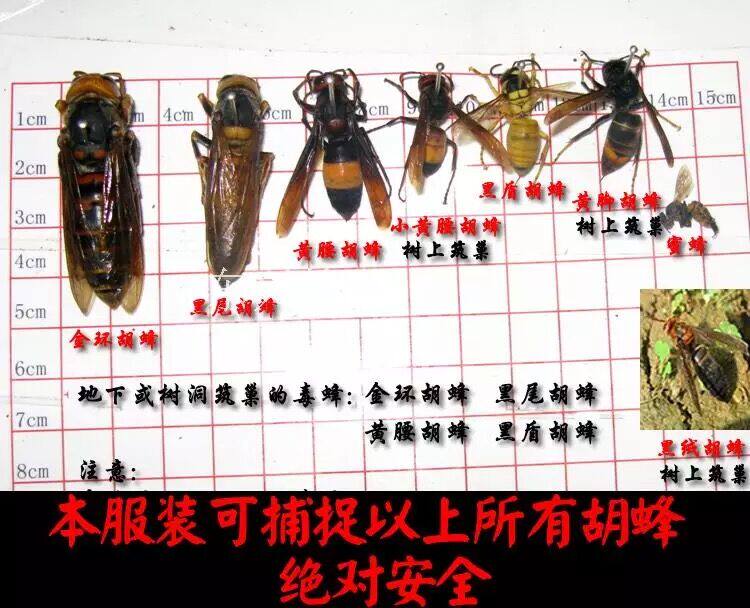 1cm 4cm 14cm 15cm
2cm
3cm
4cm
5cm
6cm
7cm
8cm
金环胡蜂
黑尾胡蜂
黄腰胡蜂
小黄腰胡蜂
树上筑巢
黑盾胡蜂
黄脚胡蜂
树上筑巢
蜜蜂
黑绒胡蜂
树上筑巢
地下或树洞筑巢的毒蜂: 金环胡蜂 黑尾胡蜂
黄腰胡蜂 黑盾胡蜂
注意:
本服装可捕捉以上所有胡蜂
绝对安全